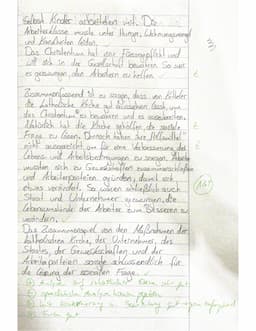 Selbst Kinder arbeiteten viel. Die
Arbeiterklasse musste unter Hunger, Wohnungsmangel
und Krankheiten leiden.
Das Christentum hat eine Fürsorgepflicht und
will sich in der Gesellschaft bewahren. So war
es gezwungen den Arbeitern zu helfen.
Zusammenfassend ist zu sagen, dass
die katholische Kirche
das Christentum zu bewahren und es auszubreiten.
Natürlich hat die Kirche geholfen die soziale
Frage zu lösen. Dennoch haben ihre Hilfsmittel
nicht ausgereicht um für eine Verbesserung der
Lebens- und Arbeitsbedingungen zu sorgen. Arbeiter
mussten sich zu Gewerkschaften zusammenschließen
und Arbeiterparteien gründen, damit sich
etwas verändert. So waren schließlich auch
Staat und Unternehmer gezwungen, die
Lebensumstände der Arbeiter zum Besseren zu
verändern.
Das Zusammenspiel von den Maßnahmen der
katholischen Kirche, der Unternehmer, des
Staates, der Gewerkschaften und der
Arbeiterparteien sorgte schlussendlich für
die Lösung der sozialen Frage.
Analyse auf inhaltlicher Ebene
sprachliche Analyse
gut